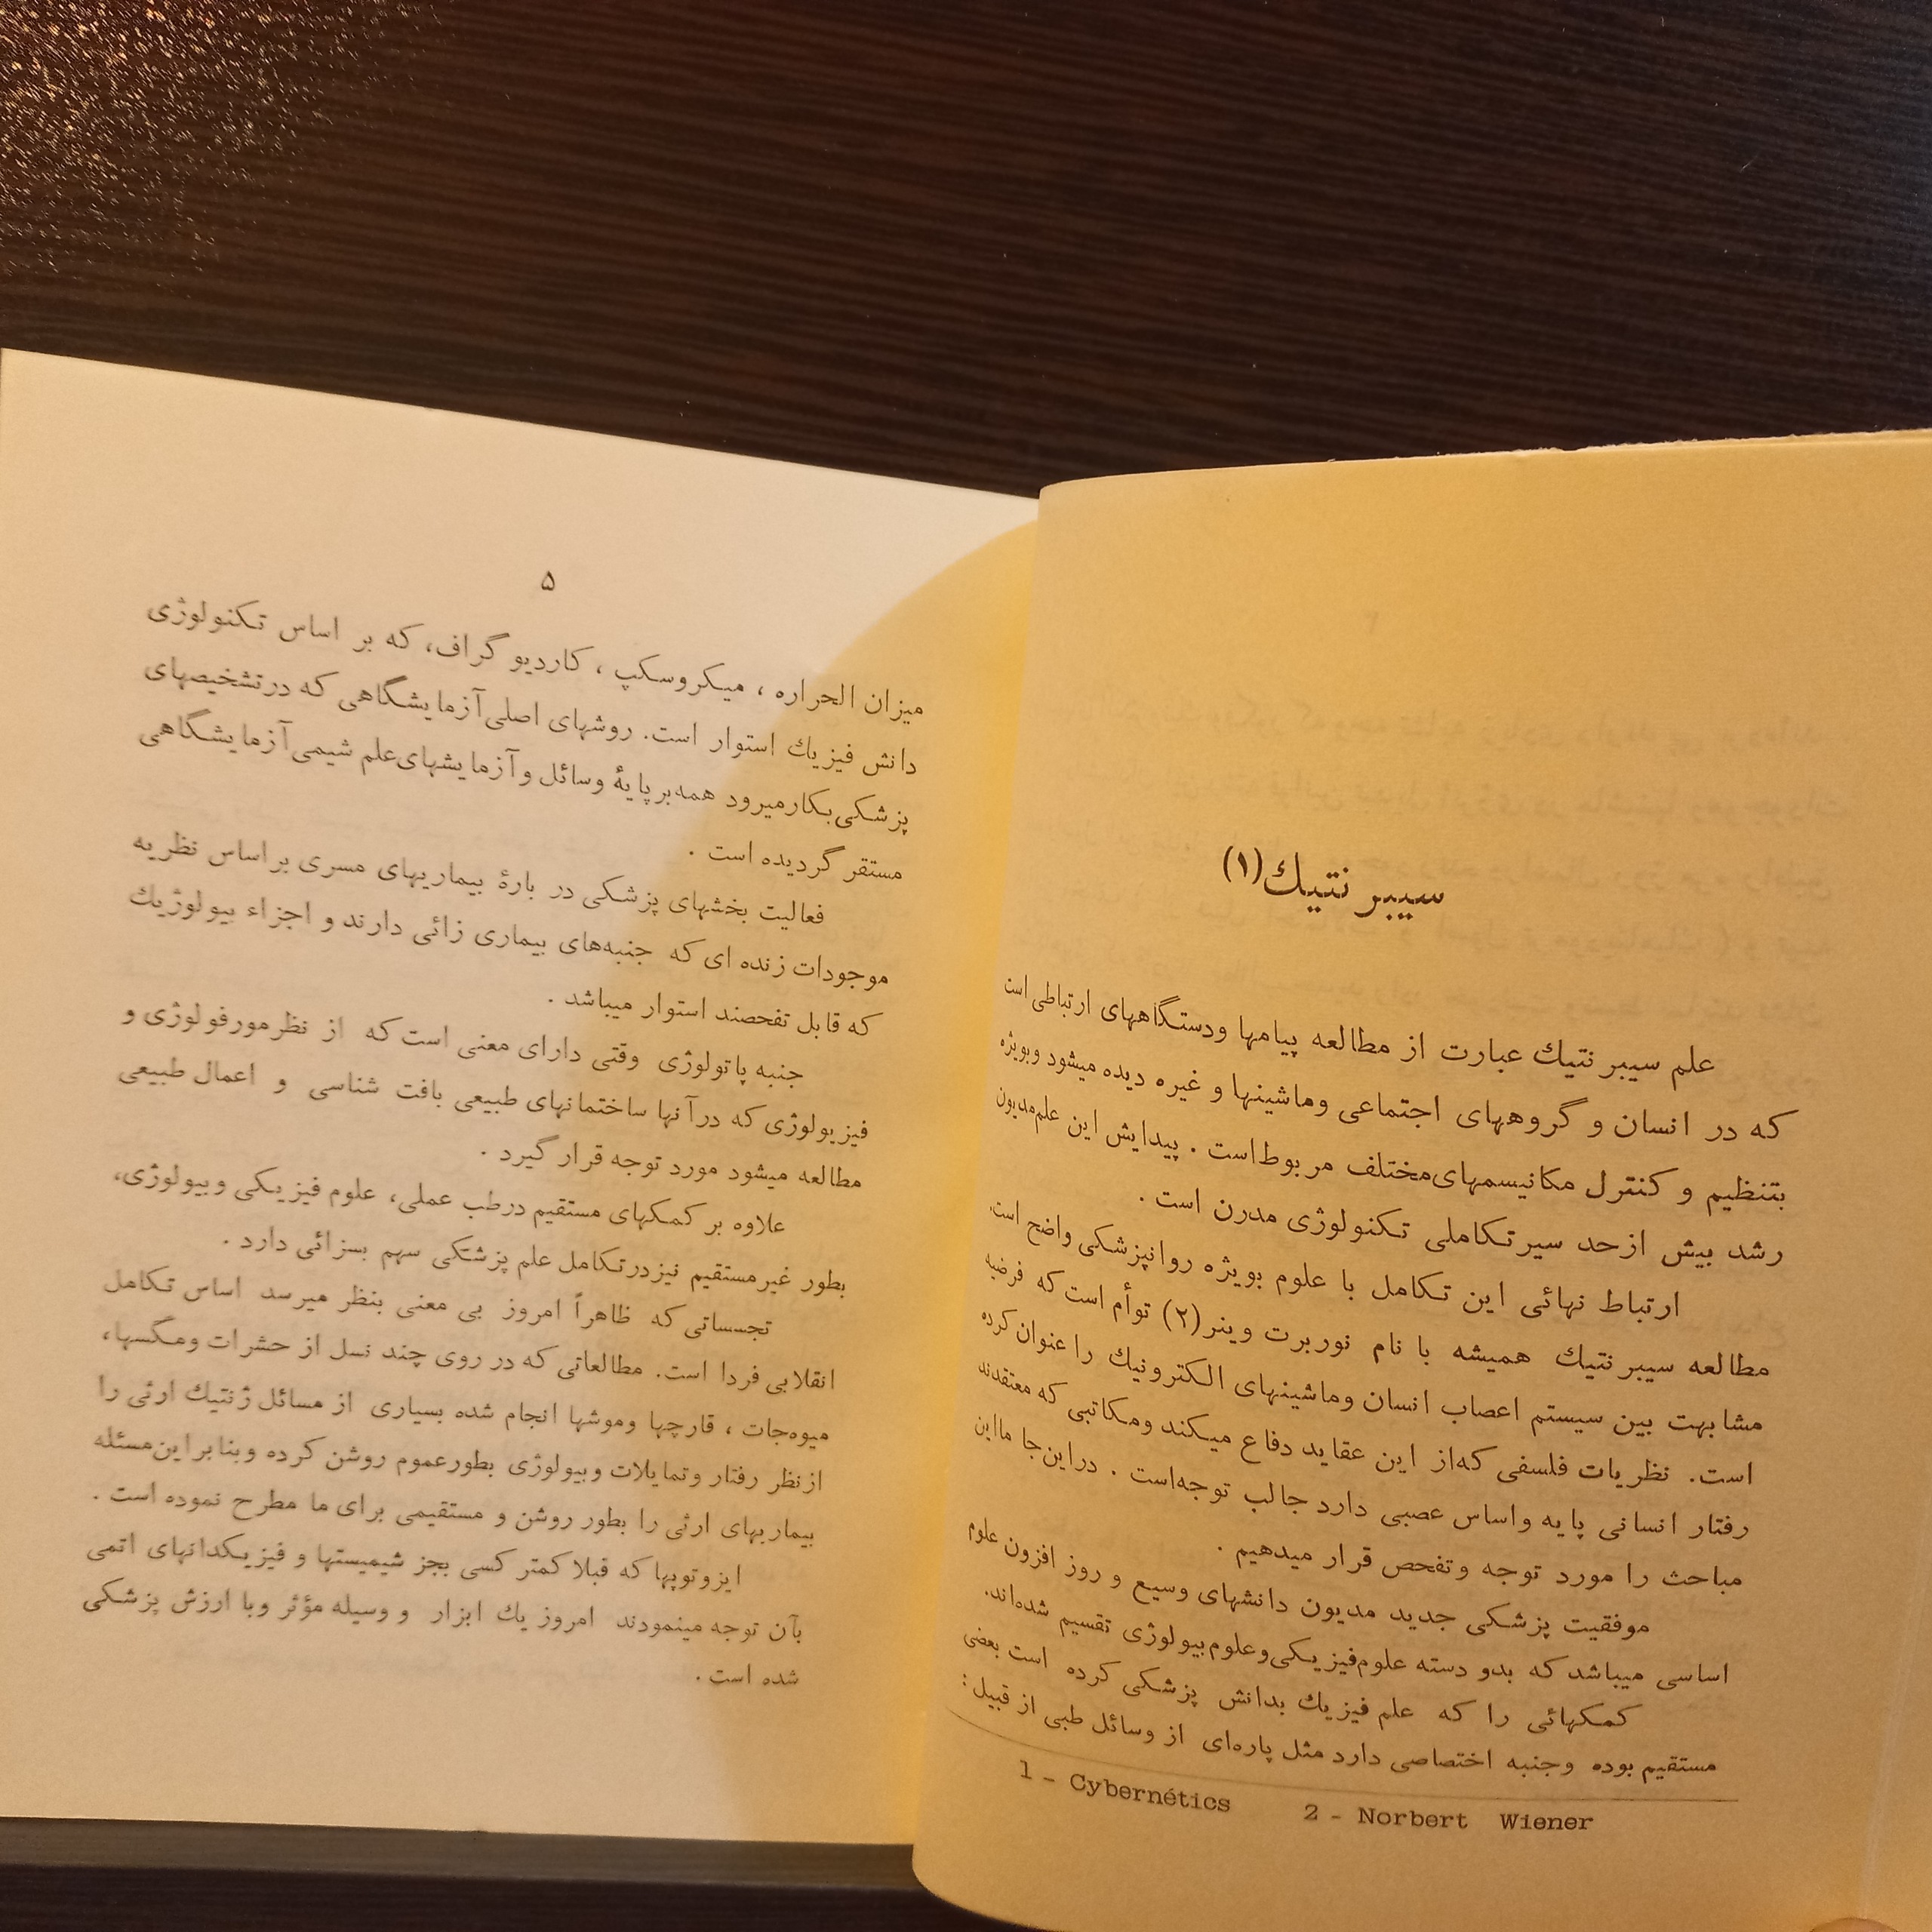 سیبر نتیك(۱)
علم سیبر نتیك عبارت از مطالعه پیامها ودستگاههای ارتباطی است
که در انسان و گروههای اجتماعی وماشینها و غیره دیده میشود وبویژه
بتنظیم و کنترل مکانیسمهای مختلف مربوط است . پیدایش این علم مدیون
رشد بیش ازحد سیر تکاملی تکنولوژی مدرن است .
ارتباط نهائی این تکامل با علوم بویژه روانپزشکی واضح است.
مطالعه سیبر نتیك همیشه با نام نوربرت وینر(۲) توأم است که فرضیه
مشابهت بین سیستم اعصاب انسان وماشینهای الکترونیك را عنوان کرده
است. نظریات فلسفی که از این عقاید دفاع میکند ومکاتبی که معتقدند
رفتار انسانی پایه واساس عصبی دارد جالب توجه است . دراین جا مااین
مباحث را مورد توجه وتفحص قرار میدهیم .
موفقیت پزشکی جدید مدیون دانشهای وسیع و روز افزون علوم
اساسی میباشد که بدو دسته علوم فیزیکی وعلوم بیولوژی تقسیم شده‌اند.
کمکهائی را که علم فیزیك بدانش پزشکی کرده است بعضی
مستقیم بوده وجنبه اختصاصی دارد مثل پاره‌ای از وسائل طبی از قبیل :
1 - Cybernétics 2 - Norbert Wiener
۵
میزان الحراره ، میکروسکپ ، کاردیو گراف، که بر اساس تکنولوژی
دانش فیزیك استوار است. روشهای اصلی آزمایشگاهی که درتشخیصهای
پزشکی بکارمیرود همه بر پایهٔ وسائل وآزمایشهای علم شیمی آزمایشگاهی
مستقر گردیده است .
فعالیت بخشهای پزشکی در بارهٔ بیماریهای مسری براساس نظریه
موجودات زنده ای که جنبه‌های بیماری زائی دارند و اجزاء بیولوژیك
که قابل تفحصند استوار میباشد .
جنبه پاتولوژی وقتی دارای معنی است که از نظرمورفولوژی و
فیزیولوژی که درآنها ساختمانهای طبیعی بافت شناسی و اعمال طبیعی
مطالعه میشود مورد توجه قرار گیرد .
علاوه بر کمکهای مستقیم درطب عملی، علوم فیزیکی وبیولوژی،
بطور غیرمستقیم نیزدرتکامل علم پزشتکی سهم بسزائی دارد .
تجسساتی که ظاهراً امروز بی معنی بنظر میرسد اساس تکامل
انقلابی فردا است. مطالعاتی که در روی چند نسل از حشرات ومگسها،
میوه‌جات ، قارچها وموشها انجام شده بسیاری از مسائل ژنتیك ارثی را
ازنظر رفتار وتمایلات وبیولوژی بطورعموم روشن کرده وبنابراین مسئله
بیماریهای ارثی را بطور روشن و مستقیمی برای ما مطرح نموده است .
ایزوتوپها که قبلا کمتر کسی بجز شیمیستها و فیزیکدانهای اتمی
بآن توجه مینمودند امروز یك ابزار و وسیله مؤثر وبا ارزش پزشکی
شده است .